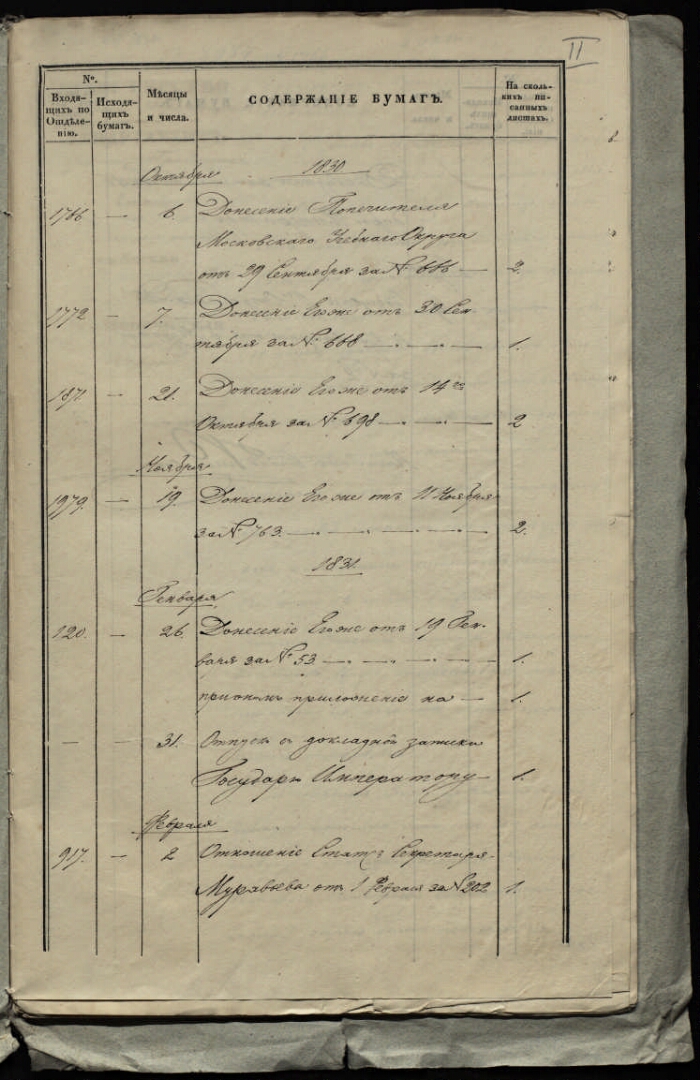 II
№.
Входящихъ по Отдѣленію.
Исходящихъ бумагъ.
Мѣсяцы и числа.
СОДЕРЖАНІЕ БУМАГЪ.
На сколькихъ писанныхъ листахъ.
Октября 1830
1766 — 6. Донесеніе Попечителя
Московскаго Учебнаго Округа
отъ 29 Сентября за № 666 — 2.
1772 — 7. Донесеніе Егоже отъ 30 Сен-
тября за № 668 — 1.
1871 — 21. Донесеніе Егоже отъ 14го
Октября за № 698 — 2
Ноября
1979. — 19. Донесеніе Егоже отъ 11 Ноября
за № 763. — 2.
1831.
Генваря
120. — 26. Донесеніе Егоже отъ 19 Ген-
варя за № 53 — 1.
при ономъ приложеніе на — 1.
— — 31. Отпускъ съ докладной записки
Государю Императору — 1.
Февраля
917. — 2 Отношеніе Статсъ Секретаря
Муравьева отъ 1 Февраля за № 202 1.